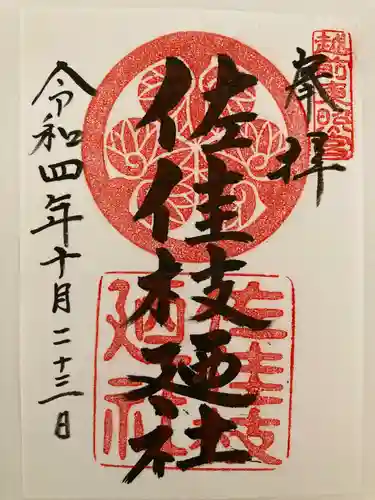 奉拝
越前東照宮
佐佳枝廼社
佐佳枝廼社
令和四年十月二十三日